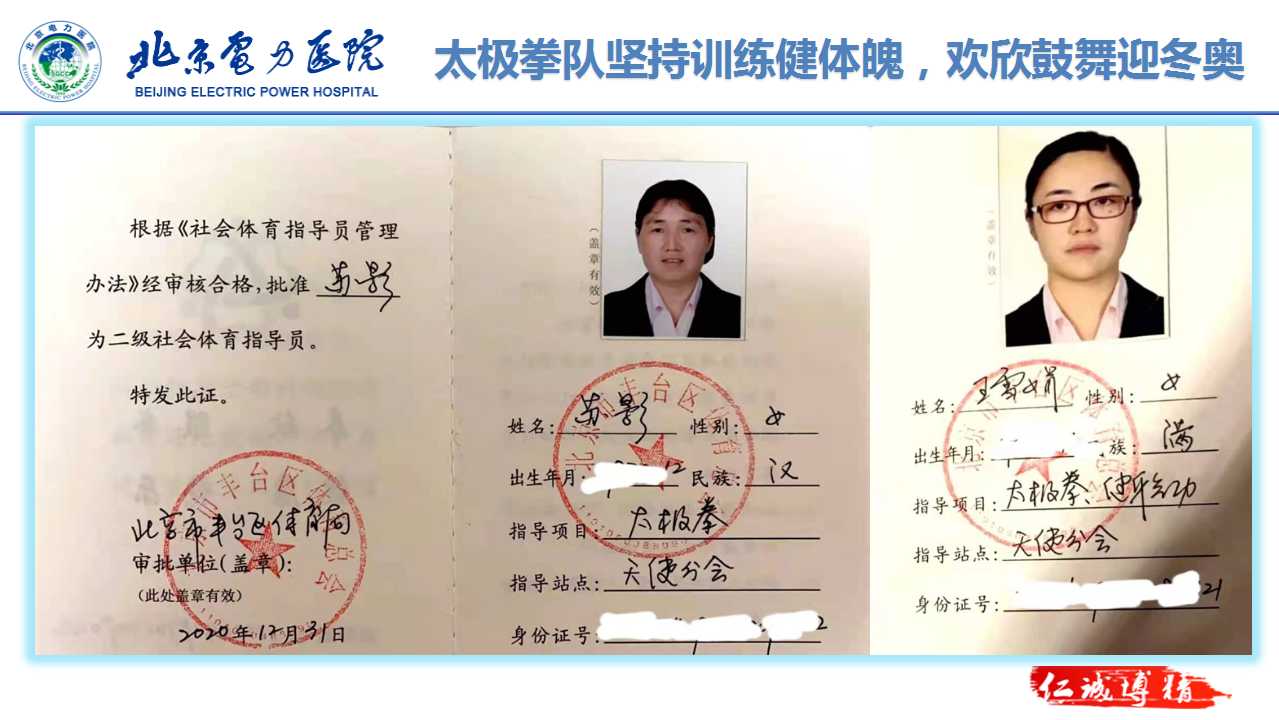 北京电力医院
BEIJING ELECTRIC POWER HOSPITAL
太极拳队坚持训练健体魄，欢欣鼓舞迎冬奥
根据《社会体育指导员管理
办法》经审核合格,批准 苏影
为二级社会体育指导员。
特发此证。
北京市丰台区体育局
审批单位(盖章):
(此处盖章有效)
2020年12月31日
(盖章有效)
姓名: 苏影 性别: 女
出生年月: 12 民族: 汉
指导项目: 太极拳
指导站点: 天使分会
身份证号: 2
(盖章有效)
姓名: 王雪娟 性别: 女
出生年月: 民族: 满
指导项目: 太极拳、健身气功
指导站点: 天使分会
身份证号: 21
仁诚博精